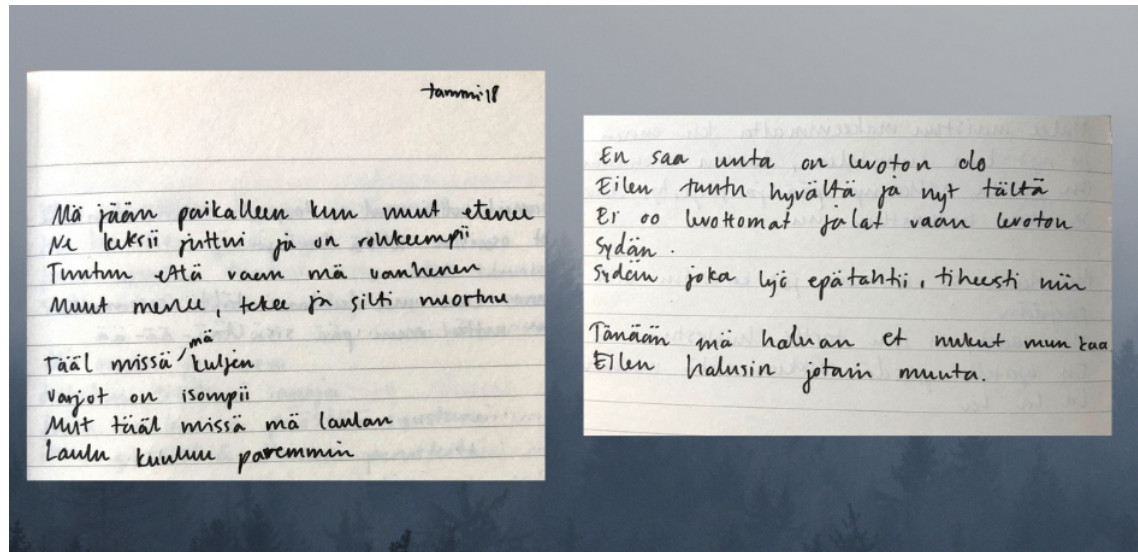 tammi 18
Mä jään paikalleen kun muut etenee
Ne keksii juttui ja on rohkeempii
Tuntuu että vaan mä vanhenen
Muut menee, tekee ja silti nuortuu
Tääl missä mä kuljen
varjot on isompii
Mut tääl missä mä laulan
Laulu kuuluu paremmin
En saa unta on levoton olo
Eilen tuntu hyvältä ja nyt tältä
Ei oo levottomat jalat vaan levoton
sydän.
Sydän joka lyö epätahtii, tiheesti niin
Tänään mä haluan et nukut mun kaa
Eilen halusin jotain muuta.